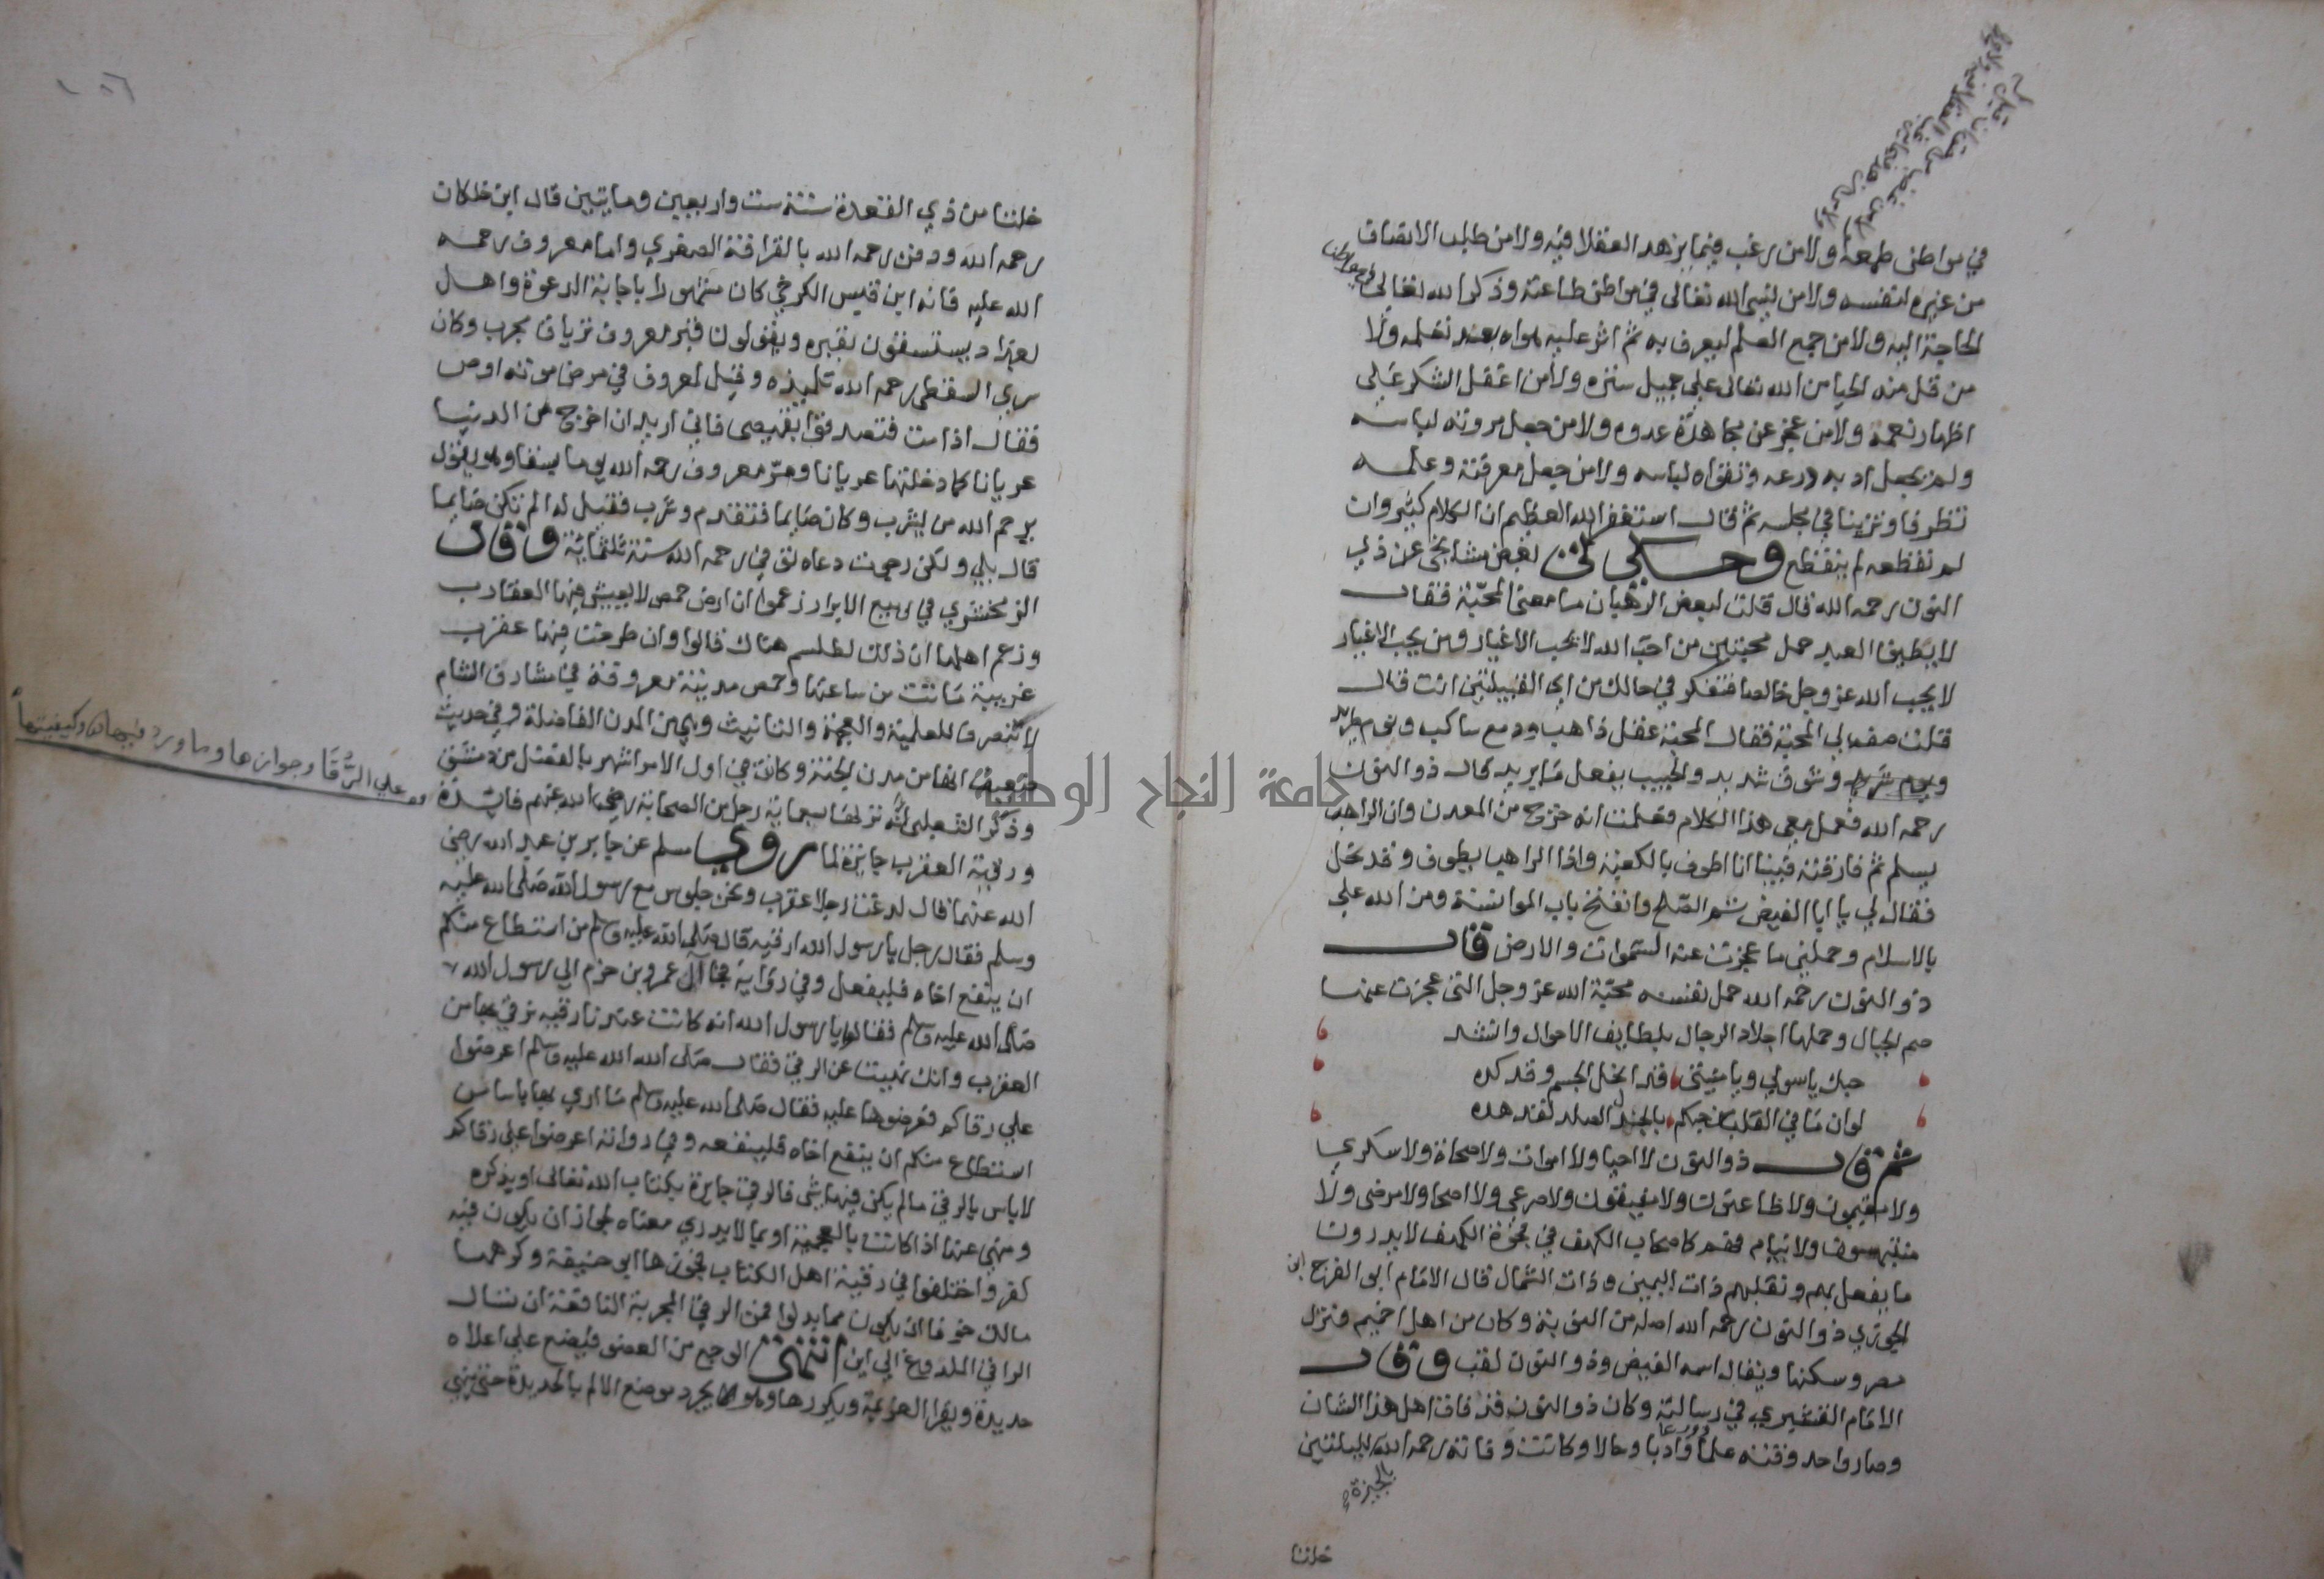 في مواطن طمعه ولا من رغب فيما يزهد العقلا فيه ولا من طلب الانصاف
من غيره لنفسه ولا من نسي الله تعالى في مواطن طاعته وذكر الله تعالى في مواطن
الحاجة اليه ولا من جمع العلم ليعرف به ثم اثر عليه هواه بعد تعلمه ولا
من قل منه الحيا من الله تعالى على جميل ستره ولا من اغفل الشكر على
اظهار نعمه ولا من عجز عن مجاهدة عدوه ولا من جعل مروته لباسه
ولم يجعل ادبه درعه وتقواه لباسه ولا من جعل معرفته وعلمه
تظرفا وتزينا في مجلسه ثم قال استغفر الله العظيم ان الكلام كثير وان
لم تقطعه لم ينقطع وحكى لي بعض مشايخي عن ذي
النون رحمه الله قال قلت لبعض الرهبان ما معنى المحبة فقال
لا يطيق العبد حمل محبتين من احب الله لا يحب الاغيار ومن يحب الاغيار
لا يحب الله عز وجل خالصا فتفكر في حالك من اي القبيلتين انت قال
قلت صف لي المحبة فقال المحبة عقل ذاهب ودمع ساكب ونوم طريد
وشوق شديد والحبيب يفعل ما يريد قال ذو النون
رحمه الله فعمل معي هذا الكلام فعلمت انه خرج من المعدن وان الراهب
يسلم ثم فارقته فبينا انا اطوف بالكعبة واذا الراهب يطوف وقد نحل
فقال لي يا ابا الفيض تم الصلح وانفتح باب الموانسة ومن الله علي
بالاسلام وحملني ما عجزت عنه السموات والارض قال
ذو النون رحمه الله حمل نفسه محبة الله عز وجل التي عجزت عنها
صم الجبال وحملها اجلاد الرجال بلطايف الاحوال وانشد
حبك يا سولي ويا منيتي قد انحل الجسم وقد كده
لو ان ما في القلب من حبكم بالجبل الصلد لقد هده
ثم قال ذو النون لا احيا ولا اموات ولا صحاة ولا سكري
ولا مقيمون ولا ظاعنون ولا مفيقون ولا صرعى ولا اصحا ولا مرضى ولا
منتبهون ولا نيام فهم كاصحاب الكهف في فجوة الكهف لا يدرون
ما يفعل بهم وتقلبهم ذات اليمين وذات الشمال قال الامام ابو الفرج ابن
الجوزي ذو النون رحمه الله اصله من النوبة وكان من اهل اخميم فنزل
مصر وسكنها ويقال اسمه الفيض وذو النون لقب وقال
الامام القشيري في رسالته وكان ذو النون قد فاق اهل هذا الشان
وصار واحد وقته علما وورعا وادبا وحالا وكانت وفاته رحمه الله لليلتين
بالجيزة
خلتا
خلتا من ذي القعدة سنة ست واربعين ومايتين قال ابن خلكان
رحمه الله ودفن رحمه الله بالقرافة الصغري واما معروف رحمه
الله عليه فانه ابن قيس الكرخي كان مشهورا باجابة الدعوة واهل
بغداد يستسقون بقبره ويقولون قبر معروف ترياق مجرب وكان
سري السقطي رحمه الله تلميذه وقيل لمعروف في مرض موته اوص
فقال اذا مت فتصدقوا بقميصي فاني اريد ان اخرج من الدنيا
عريانا كما دخلتها عريانا ومر معروف رحمه الله يوما بسقا وهو يقول
يرحم الله من يشرب وكان صايما فتقدم وشرب فقيل له الم تكن صايما
قال بلي ولكن رجوت دعاه توفي رحمه الله سنة وقال
الزمخشري في ربيع الابرار زعموا ان ارض حمص لا يعيش فيها العقارب
وزعم اهلها ان ذلك لطلسم هناك قالوا وان طرحت فيها عقرب
غريبة ماتت من ساعتها وحمص مدينة معروفة في مشارق الشام
لا تنصرف للعلمية والعجمة والتانيث وهي من المدن الفاضلة وفي حديث
ضعيف انها من مدن الجنة وكانت في اول الامر اشهر بالفضل من دمشق
وذكر الثعلبي انه نزلها سبعماية رجل من الصحابة رضي الله عنهم فايدة
ورقية العقرب جايزة لما روي مسلم عن جابر بن عبد الله رضي
الله عنهما قال لدغت رجلا عقرب ونحن جلوس مع رسول الله صلى الله عليه
وسلم فقال رجل يا رسول الله ارقيه قال صلى الله عليه وسلم من استطاع منكم
ان ينفع اخاه فليفعل وفي رواية فجا آل عمرو بن حزم الي رسول الله
صلى الله عليه وسلم فقالوا يا رسول الله انه كانت عندنا رقية نرقي بها من
العقرب وانك نهيت عن الرقي فقال صلى الله عليه وسلم اعرضوا
علي رقاكم فعرضوها عليه فقال صلى الله عليه وسلم ما اري بها باسا من
استطاع منكم ان ينفع اخاه فلينفعه وفي رواية اعرضوا على رقاكم
لا باس بالرقي ما لم يكن فيها شي فالرقي جايزة بكتاب الله تعالى او بذكره
ومنهي عنها اذا كانت بالعجمية او بما لا يدري معناه لجواز ان يكون فيه
كفر واختلفوا في رقية اهل الكتاب فجوزها ابي حنيفة وكرهها
مالك خوفا ان يكون مما بدلوا فمن الرقي المجربة النافعة ان يسال
الراقي الملدوغ الي اين انتهى الوجع من العضو فيضع علي اعلاه
حديدة ويقرا العزيمة ويكررها وهو يجرد موضع الالم بالحديدة حتي ينتهي
علي الرُّقَا وجوازها وما ورد فيها وكيفيتها
جامعة النجاح الوطنية